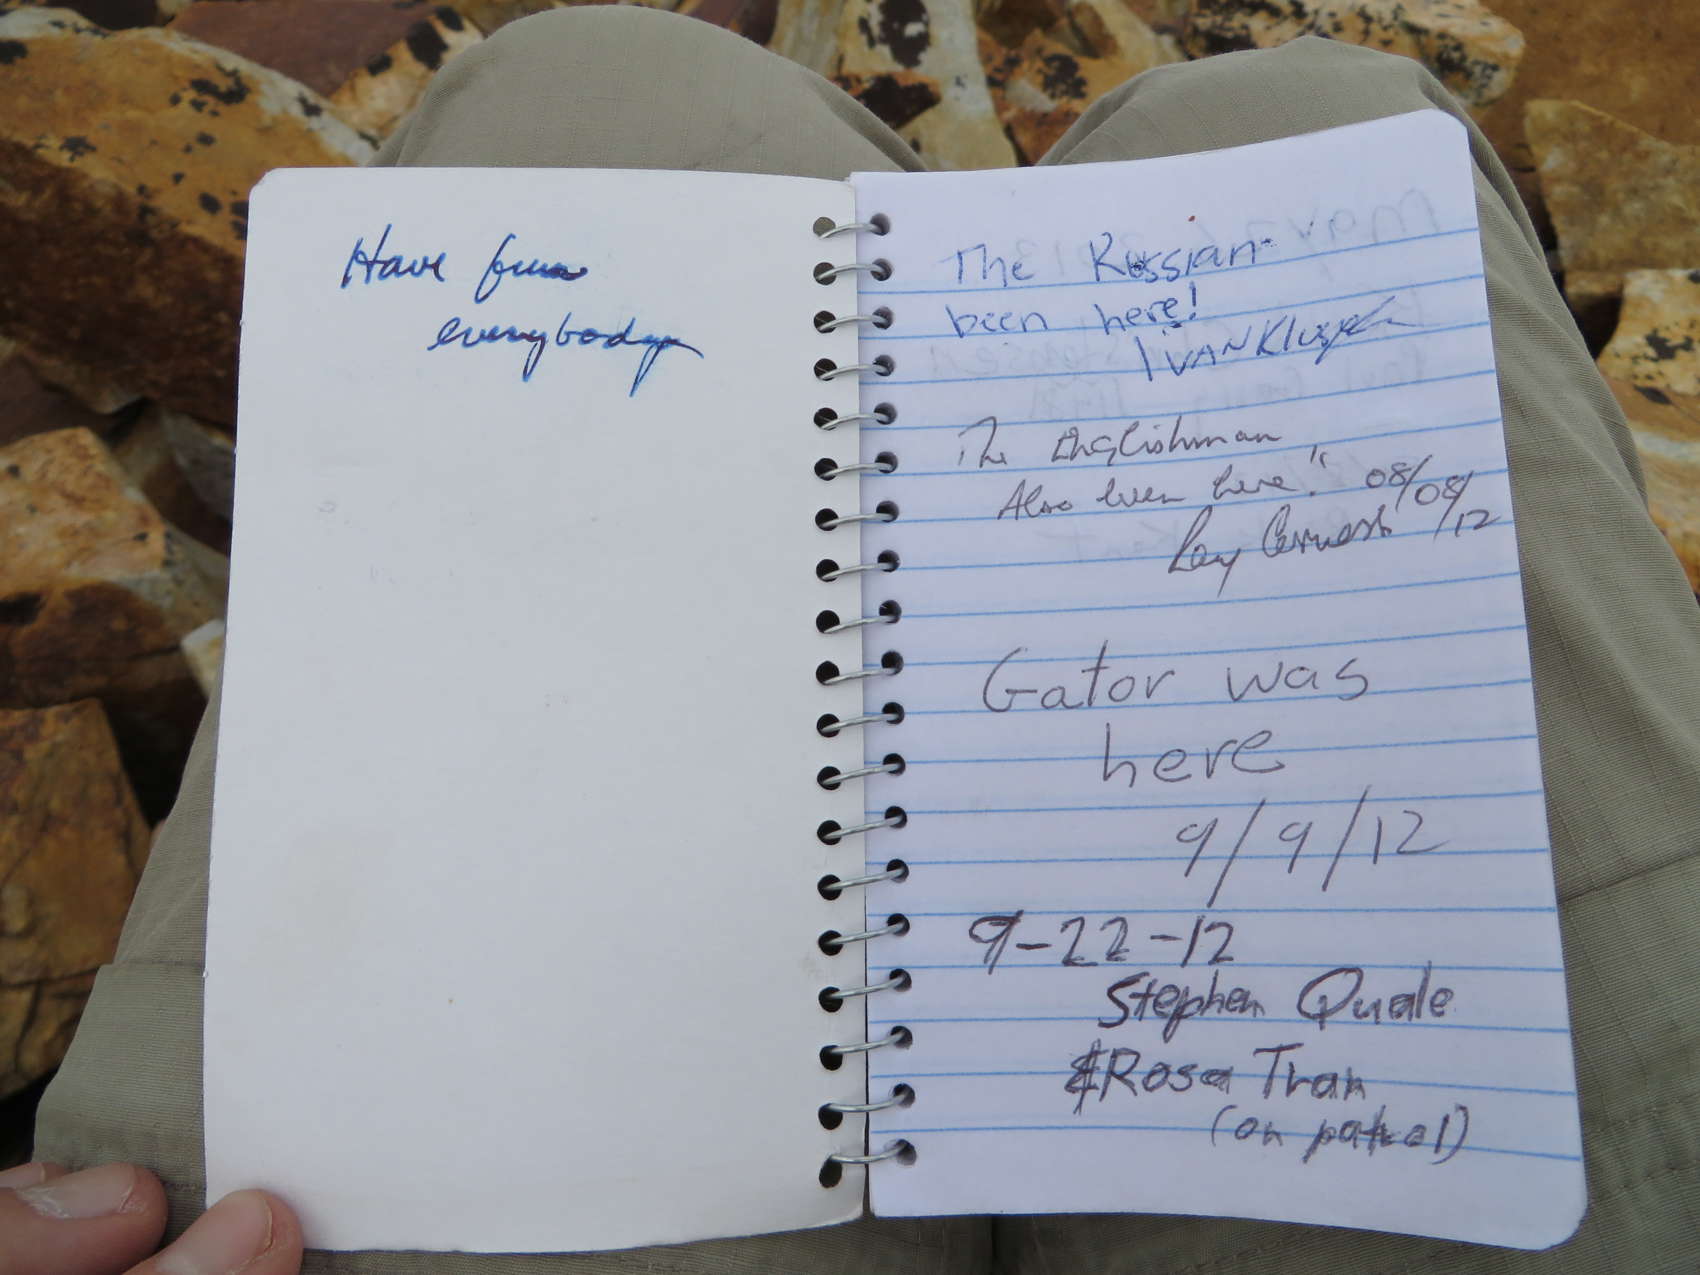 Have fun
everybody
The Russian
been here!
IVAN
The Englishman
Also been here!! 08/08/12
Ray
Gator was
here
9/9/12
9-22-12
Stephen Quale
& Rosa Tran
(on patrol)